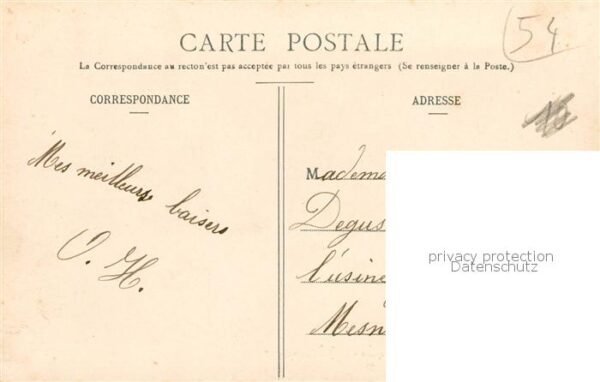 54
CARTE POSTALE
La Correspondance au recto n'est pas acceptée par tous les pays étrangers (Se renseigner à la Poste.)
CORRESPONDANCE
Mes meilleurs baisers
O. H.
ADRESSE
Madem
Degus
l'usine
Mesn
privacy protection
Datenschutz